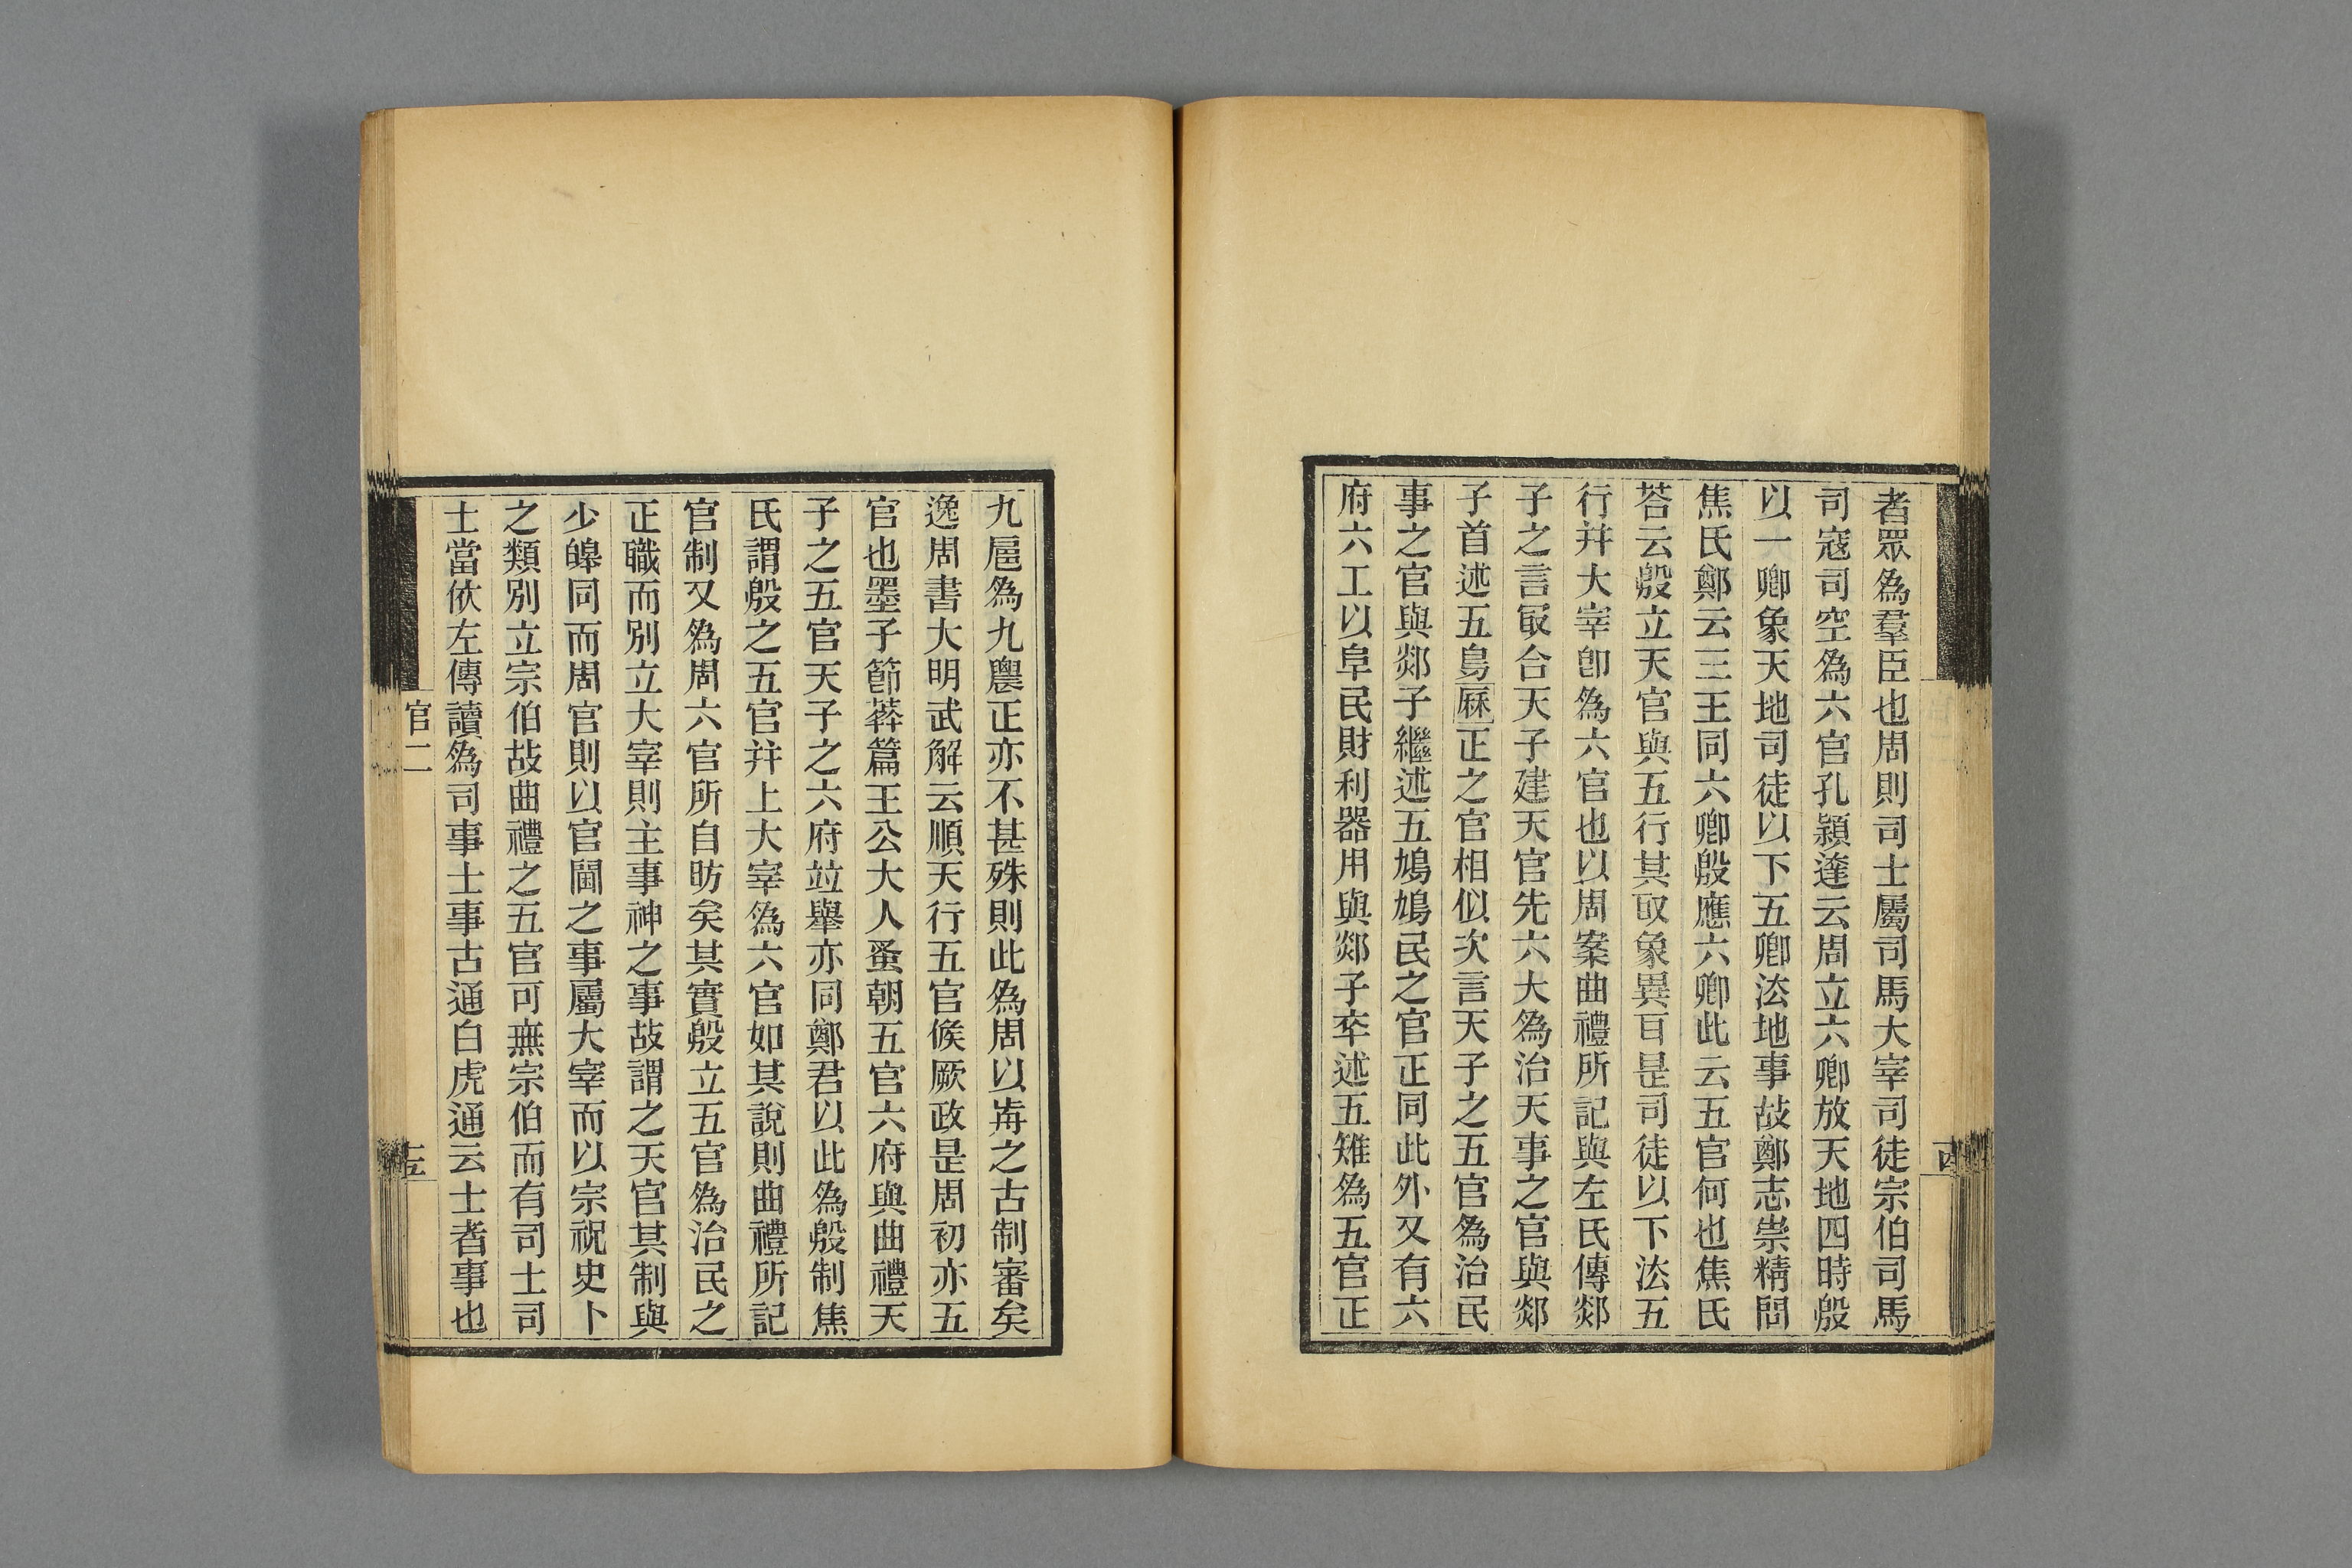 者眾為羣臣也周則司士屬司馬大宰司徒宗伯司馬
司寇司空為六官孔穎達云周立六卿放天地四時殷
以一卿象天地司徒以下五卿法地事故鄭志崇精問
焦氏鄭云三王同六卿殷應六卿此云五官何也焦氏
荅云殷立天官與五行其取象異耳是司徒以下法五
行幷大宰卽為六官也以周案曲禮所記與左氏傳郯
子之言冣合天子建天官先六大為治天事之官與郯
子首述五鳥厤正之官相似次言天子之五官為治民
事之官與郯子繼述五鳩鳩民之官正同此外又有六
府六工以阜民財利器用與郯子卒述五雉為五官正
九扈為九農正亦不甚殊則此為周以歬之古制審矣
逸周書大明武解云順天行五官候厥政是周初亦五
官也墨子節葬篇王公大人蚤朝五官六府與曲禮天
子之五官天子之六府竝舉亦同鄭君以此為殷制焦
氏謂殷之五官幷上大宰為六官如其說則曲禮所記
官制又為周六官所自昉矣其實殷立五官為治民之
正職而別立大宰則主事神之事故謂之天官其制與
少皞同而周官則以官閫之事屬大宰而以宗祝史卜
之類別立宗伯故曲禮之五官可無宗伯而有司士司
士當依左傳讀為司事士事古通白虎通云士者事也
官二